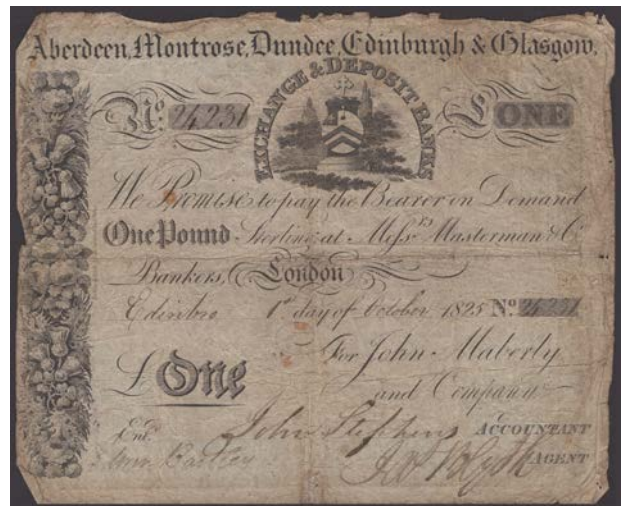 Aberdeen, Montrose, Dundee, Edinburgh & Glasgow,
EXCHANGE & DEPOSIT BANKS
No. 24231 £ ONE
We Promise to pay the Bearer on Demand
One Pound Sterling at Messrs Masterman & Co
Bankers, London
Edinbro 1st day of October 1825 No. 24231
£ One For John Maberly
and Company
Entd. John Stephens ACCOUNTANT
AGENT